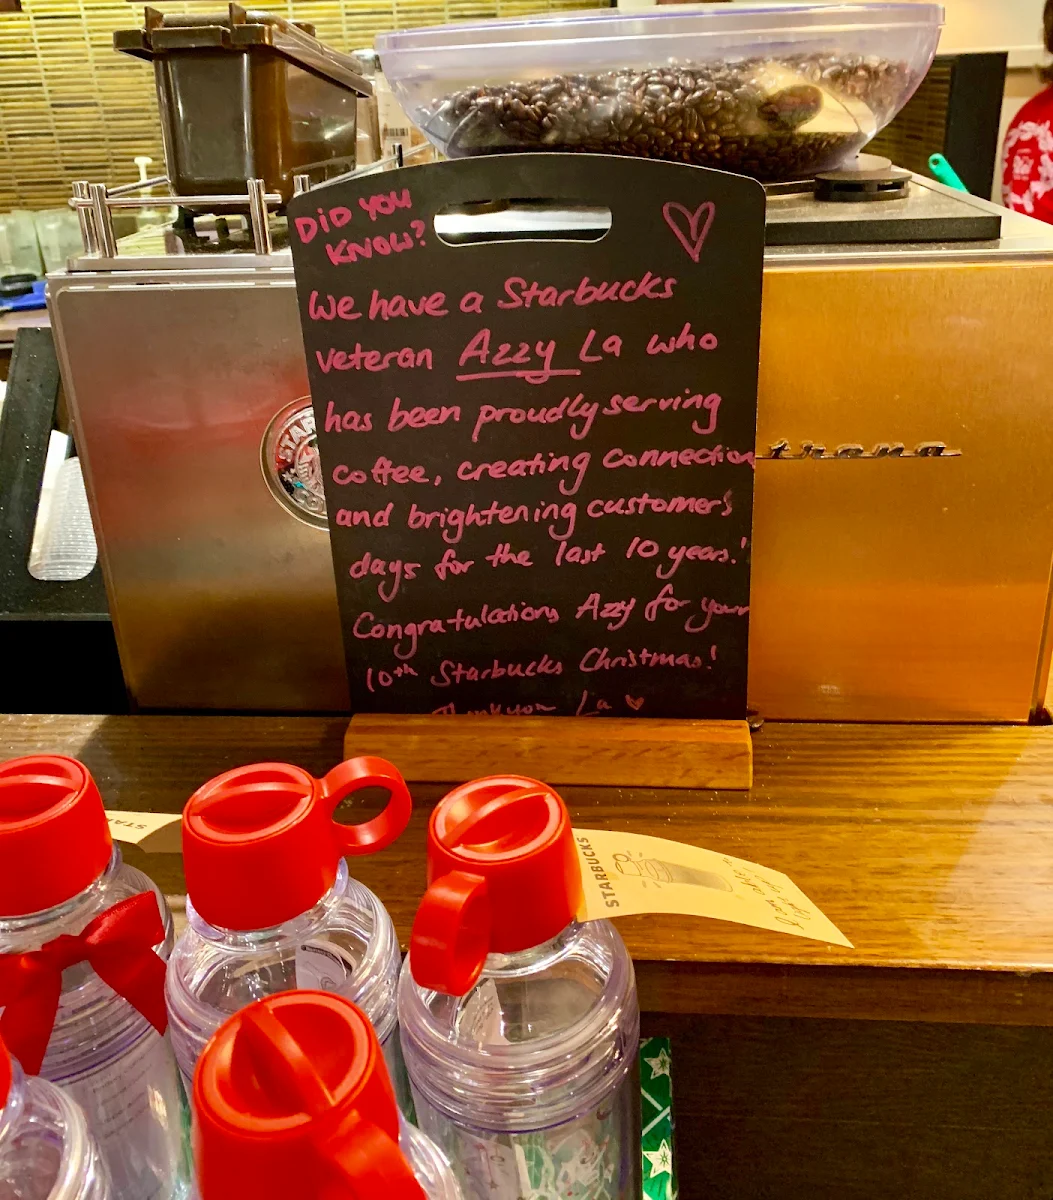 DID YOU
KNOW?
We have a Starbucks
veteran Azzy La who
has been proudly serving
coffee, creating connection
and brightening customers
days for the last 10 years!
Congratulations Azzy for your
10th Starbucks Christmas!
Thank you La
STAR
trena
STA
STARBUCKS